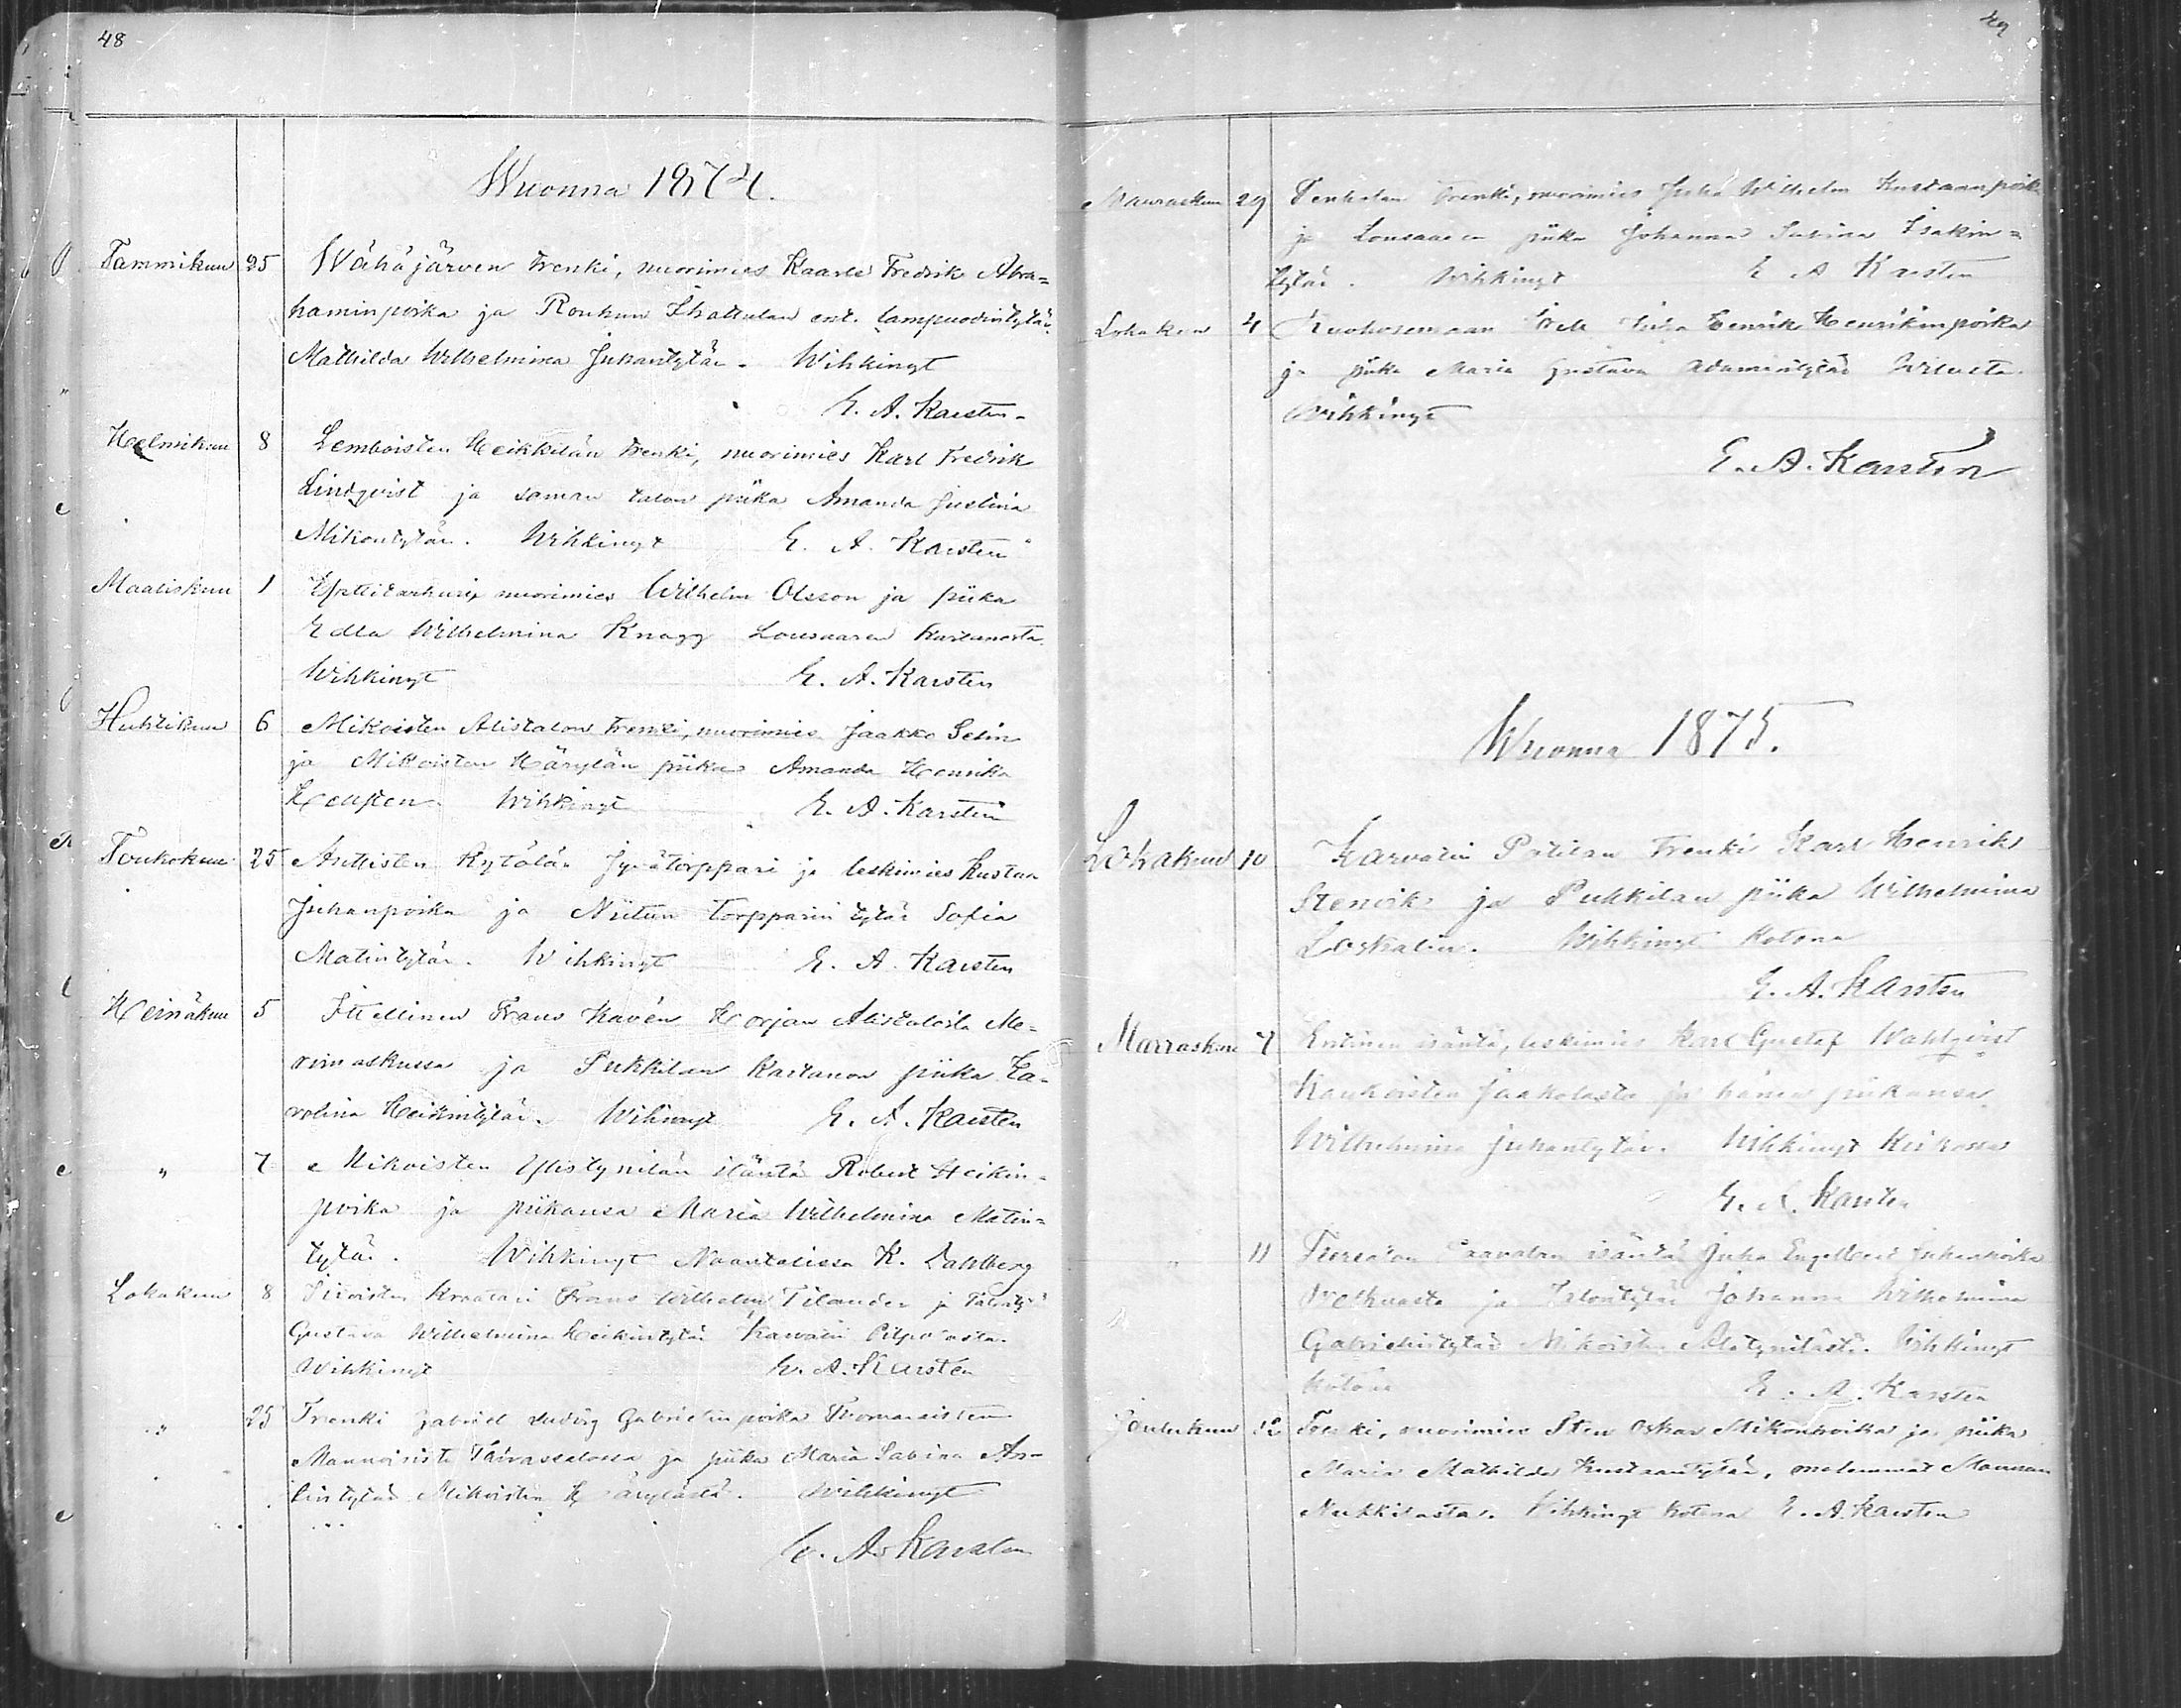 48
Wuonna 1874.
Tammikuu 25 Wähäjärven trenki, nuorimies Kaarle Fredrik Abra=
haminpoika ja Roukun ent. lampuodintytär
Mathilda Wilhelmina Juhantytär. Wihkinyt
E. A. Karsten.
Helmikuu 8 Lemboisten Heikkilän trenki, nuorimies Karl Fredrik
Lindqvist ja saman talon piika Amanda Justina
Mikontytär. Wihkinyt E. A. Karsten
Maaliskuu 1 nuorimies Wilhelm Olsson ja piika
Edla Wilhelmina Knagg Lousaaren Kartanosta.
Wihkinyt E. A. Karsten
Huhtikuu 6 Mikoisten Alistalon trenki, nuorimies Jaakko Selin
ja Mikoisten Härylän piika Amanda Henrika
Wihkinyt E. A. Karsten
Toukokuu 25 Anttisten Kytölän torppari ja leskimies Kustaa
Juhanpoika ja Niitun torpparin tytär Sofia
Matintytär. Wihkinyt E. A. Karsten
Heinäkuu 5 Itellinen Frans Kavén Korjan Alistalosta Me=
rimaskussa ja Pukkilan Kartanon piika Ca=
rolina Heikintytär. Wihkinyt E. A. Karsten
" 7 Mikoisten isäntä Robert Heikin=
poika ja piikansa Maria Wilhelmina Matin=
tytär. Wihkinyt Naantalissa K. Dahlberg
Lokakuu 8 Kraatari Frans Wilhelm Tilander ja
Gustava Wilhelmina Heikintytär Karvatin
Wihkinyt E. A. Karsten
" 25 Trenki Gabriel Ludvig Gabrielinpoika
Mannoisista Taivassalossa ja piika Maria Sabina
Mikoisten Härylästä. Wihkinyt
E. A. Karsten
49
Marraskuu 29 Penholan trenki, nuorimies Juha Wilhelm Kustaanpoika
ja Lousaaren piika Johanna Sabina Isakin=
tytär. Wihkinyt E. A. Karsten
Lokakuu 4 Juha Henrik Henrikinpoika
ja piika Maria Gustava Adamintytär
Wihkinyt
E. A. Karsten
Wuonna 1875.
Lokakuu 10 Karvatin trenki Karl Henrik
Stenvik ja Pukkilan piika Wilhelmina
Wihkinyt kotona
E. A. Karsten
Marraskuu 7 Entinen isäntä, leskimies Karl Gustaf Wahlqvist
Kaukoisten Jaakolasta ja hänen piikansa
Wilhelmina Juhantytär. Wihkinyt Kirkossa
E. A. Karsten
" 11 isäntä Juha Engelbert Juhanpoika
ja Talontytär Johanna Wilhelmina
Gabrielintytär Mikoisten. Wihkinyt
kotona E. A. Karsten
Joulukuu Trenki, nuorimies Sten Oskar Mikonpoika ja piika
Maria Mathilda Kustaantytär, molemmat
Nukkilasta. Wihkinyt kotona E. A. Karsten